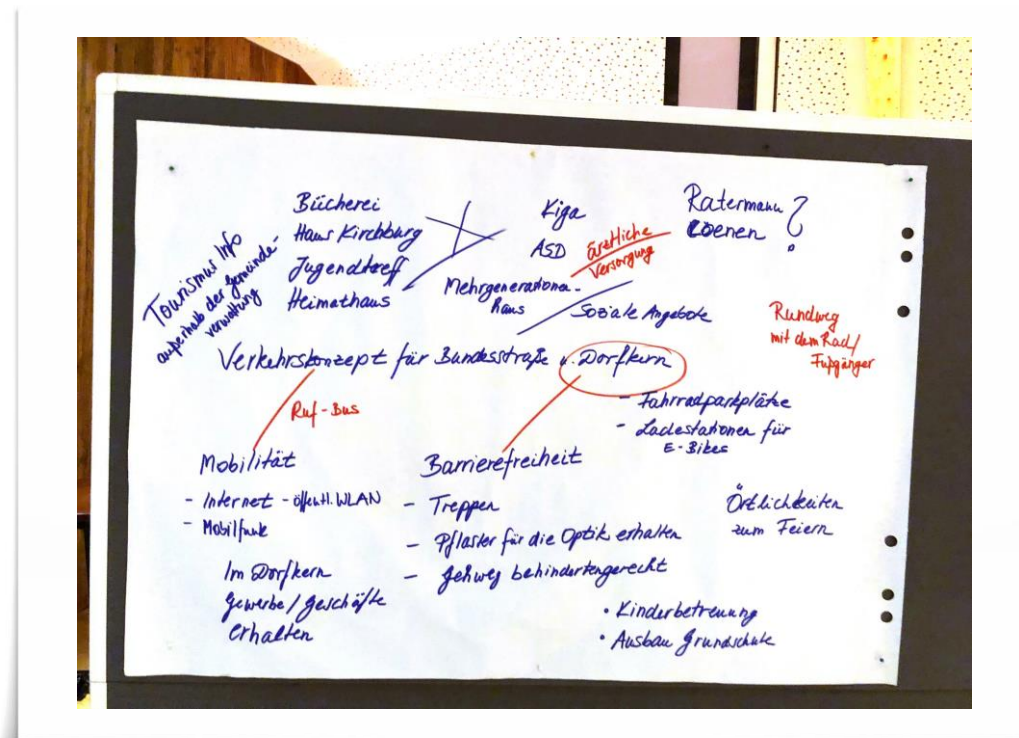 Tourismus Info
außerhalb der Gemeinde-
verwaltung
Bücherei
Haus Kirchburg
Jugendtreff
Heimathaus
Kiga
ASD
Mehrgenerationen-
haus
ärztliche
Versorgung
Soziale Angebote
Ratermann
Coenen ?
Rundweg
mit dem Rad/
Fußgänger
Verkehrskonzept für Bundesstraße u. Dorfkern
- Fahrradparkplätze
- Ladestationen für
E-Bikes
Ruf-Bus
Mobilität
- Internet - öffentl. WLAN
- Mobilfunk
Im Dorfkern
Gewerbe/Geschäfte
erhalten
Barrierefreiheit
- Treppen
- Pflaster für die Optik erhalten
- Gehweg behindertengerecht
Örtlichkeiten
zum Feiern
• Kinderbetreuung
• Ausbau Grundschule